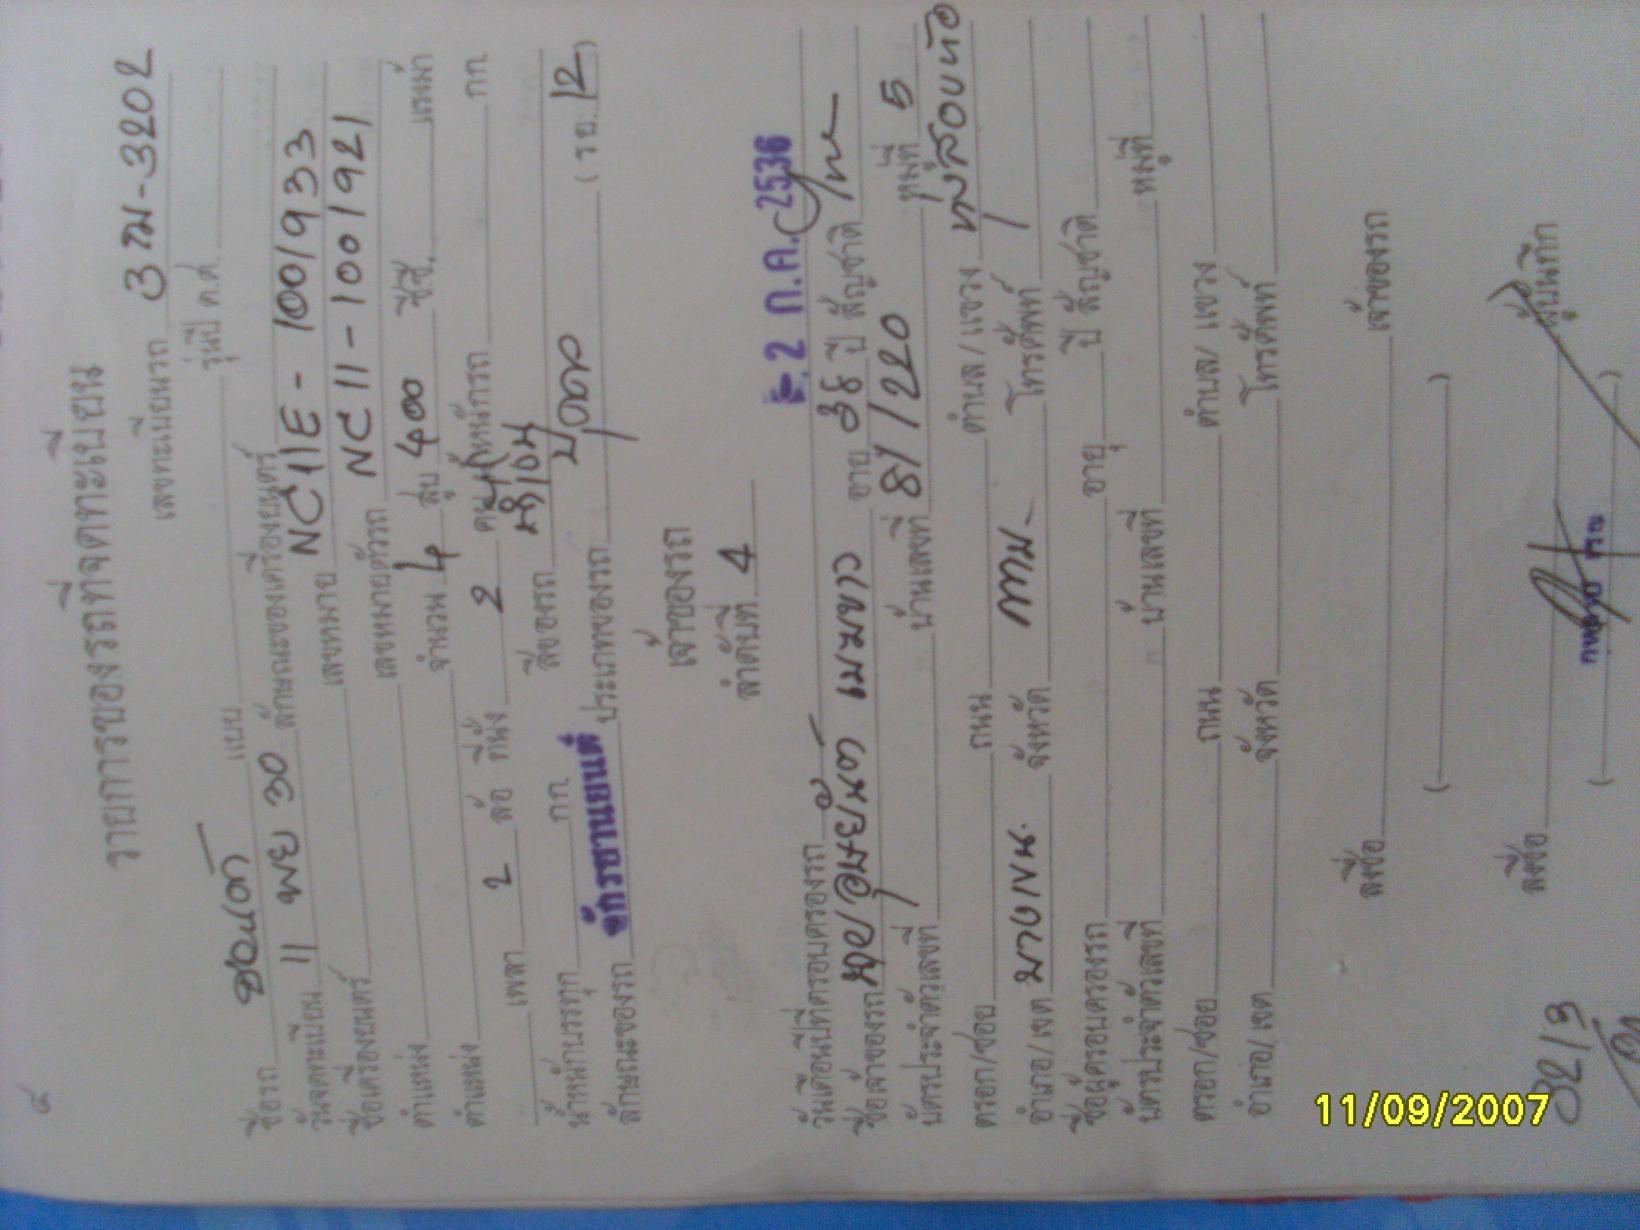 รายการของรถที่จดทะเบียน
เลขทะเบียนรถ 3 ฆ-3202
ชื่อรถ ฮอนด้า แบบ รุ่นปี ค.ศ.
วันจดทะเบียน 11 พย 30 ลักษณะของเครื่องยนต์
ชื่อเครื่องยนต์ เลขหมาย NC11E - 1001933
ตำแหน่ง เลขหมายตัวรถ NC11-1001921
ตำแหน่ง จำนวน 4 สูบ 400 ซีซี. แรงม้า
เพลา 2 ล้อ ที่นั่ง 2 คน น้ำหนักรถ กก
น้ำหนักบรรทุก กก สีของรถ
ลักษณะของรถ จักรยานยนต์ ประเภทของรถ (รย. 12 )
เจ้าของรถ
ลำดับที่ 4
วันเดือนปีที่ครอบครองรถ 2 ก.ค. 2536
ชื่อเจ้าของรถ อายุ ปี สัญชาติ ไทย
บัตรประจำตัวเลขที่ บ้านเลขที่ 81/220 หมู่ที่ 5
ตรอก/ซอย ถนน ตำบล/แขวง หมู่สองห้อง
อำเภอ/เขต บางเขน จังหวัด กทม โทรศัพท์
ชื่อผู้ครอบครองรถ อายุ ปี สัญชาติ
บัตรประจำตัวเลขที่ บ้านเลขที่ หมู่ที่
ตรอก/ซอย ถนน ตำบล/แขวง
อำเภอ/เขต จังหวัด โทรศัพท์
ลงชื่อ เจ้าของรถ
( )
ลงชื่อ ผู้บันทึก
( )
11/09/2007